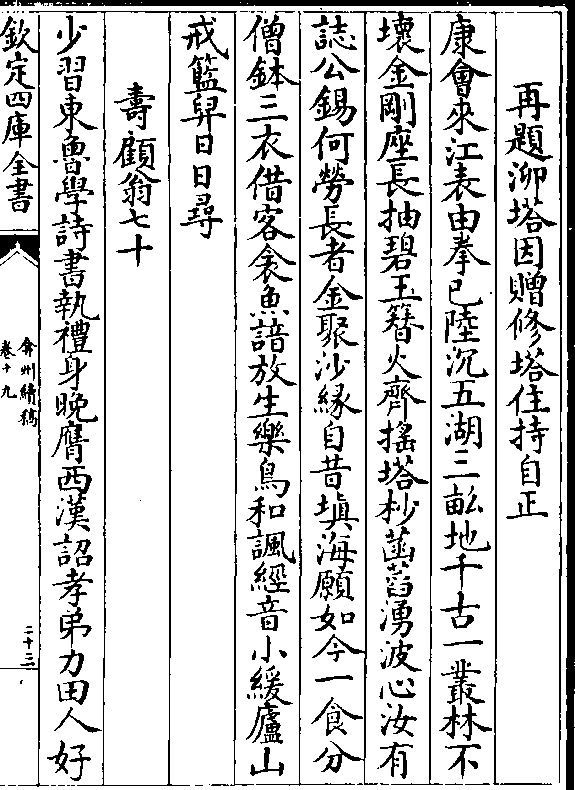 再題泖塔因贈修塔住持自正
康會來江表由拳已陸沉五湖三畝地千古一叢林不
壞金剛座長抽碧玉簪火齊搖塔杪菡萏湧波心汝有
誌公錫何勞長者金聚沙緣自昔填海願如今一食分
僧鉢三衣借客衾魚諳放生樂鳥和諷經音小緩廬山
戒籃舁日日尋
壽顧翁七十
少習東魯學詩書執禮身晚膺西漢詔孝弟力田人好
欽定四庫全書
弇州續稿
卷十九
二十三